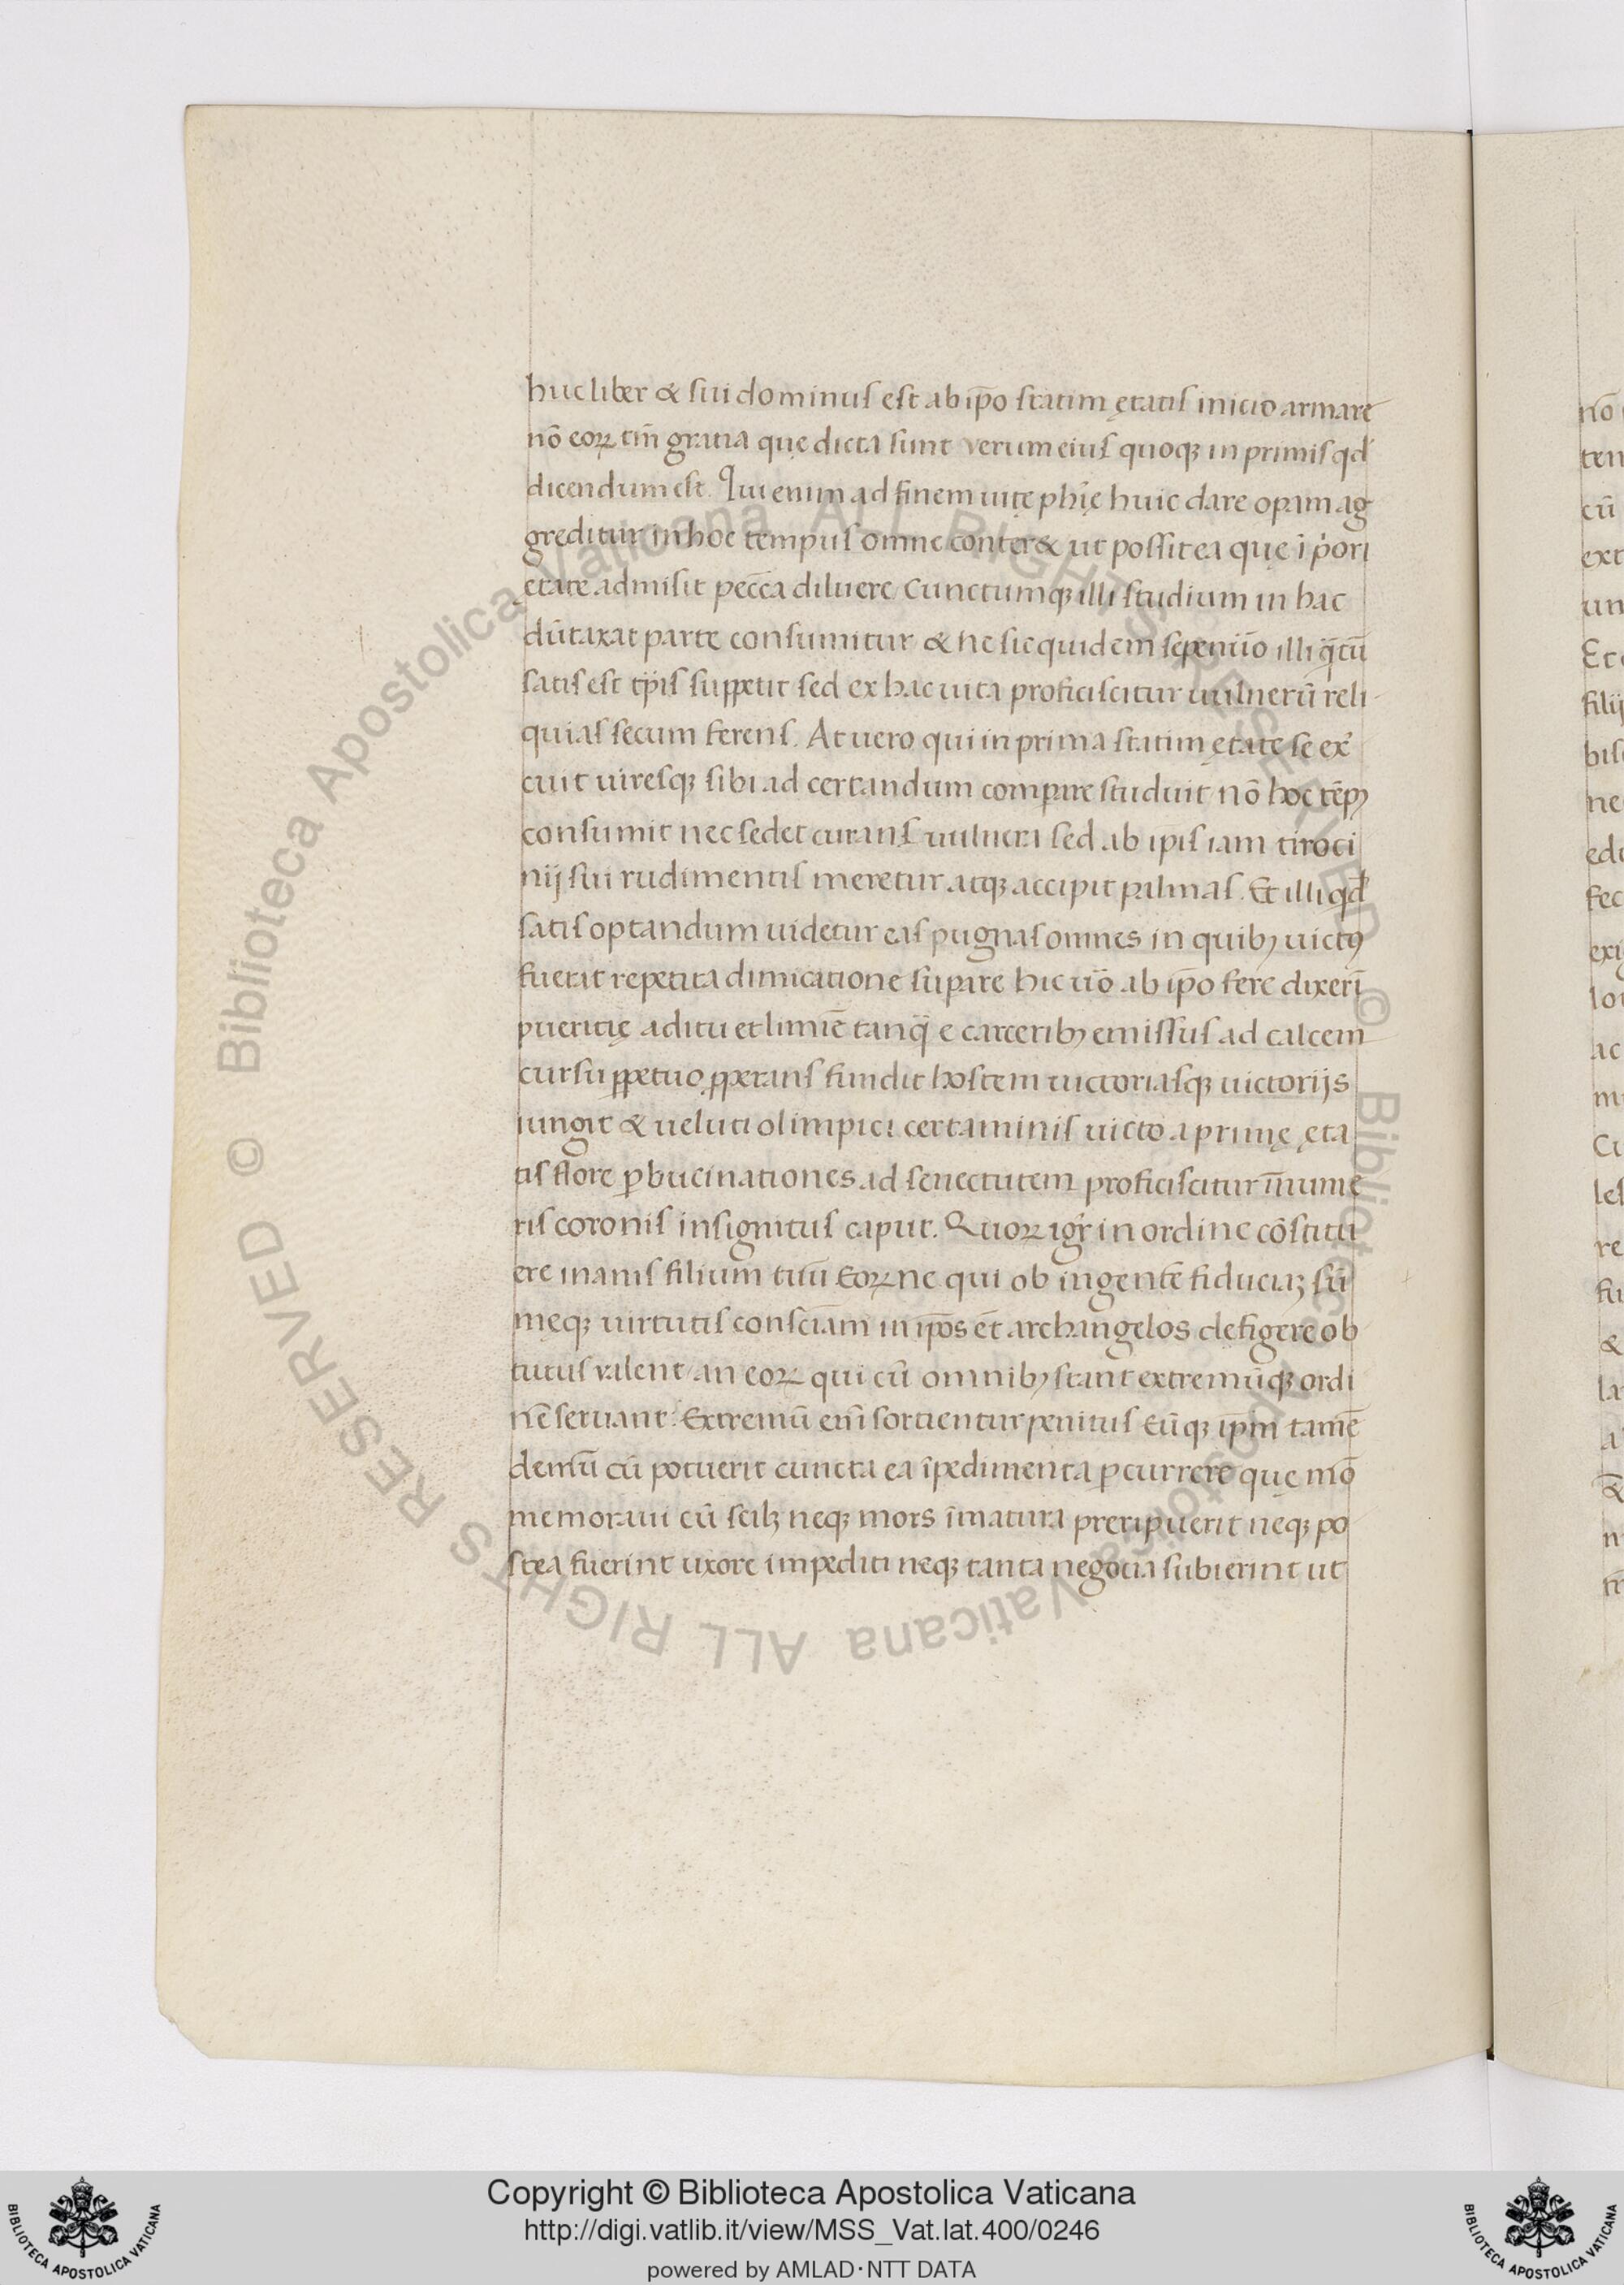 huc liber & sui dominus est ab ip̄o statim ętatis inicio armare
nō eoꝝ tm̄ gratia que dicta sunt verum eius quoqꝫ in primis qd́
dicendum est. Qui enim ad finem uitę phı̄ę huic dare opam ag
greditur in hoc tempus omne conter& ut possit ea quę ī pori
ętate admisit pecc̄a diluere cunctumqꝫ illi studium in hac
dūtaxat parte consumitur & ne sic quidem sepenūo illi q̄tū
satis est tp̄is suppetit sed ex hac uita proficiscitur uulnerū reli
quias secum ferens. At uero qui in prima statim ętate se ex̄
cuit uiresqꝫ sibi ad certandum compare studuit nō hoc tēpꝰ
consumit nec sedet curans uulnera sed ab ip̄is iam tiroci
nij sui rudimentis meretur atqꝫ accipit palmas. Et illi qd́
satis optandum uidetur eas pugnas omnes in quibꝫ uictꝰ
fuerit repetita dimicatione supare hic ūo ab ip̄o fere dixerī
pueritię aditu et limīe tanq̄ e carceribꝫ emissus ad calcem
cursu ꝑpetuo ꝓperans fundit hostem uictoriasqꝫ uictorijs
iungit & ueluti olimpici certaminis uicto a primę ęta
tis flore ꝑ bucinationes ad senectutem proficiscitur īnume
ris coronis insignitus caput. Quoꝝ igr̄ in ordine cōstitu
ere inanis filium tuū Eoꝝ ne qui ob ingentē fiduciaꝫ sū
męqꝫ uirtutis consciam in ip̄os ēt archangelos defigere ob
tutus valent an eoꝝ qui cū omnibꝫ stant extremūqꝫ ordi
nē seruant. Extremū eni sortientur penitus Eūqꝫ ip̄m tamē
demū cū potuerit cuncta ea īpedimenta ꝑcurrere quę mō
memoraui cū scilꝫ neqꝫ mors īmatura preripuerit neqꝫ po
stea fuerint uxore impediti neqꝫ tanta negocia subierint ut
Copyright © Biblioteca Apostolica Vaticana
http://digi.vatlib.it/view/MSS_Vat.lat.400/0246
powered by AMLAD·NTT DATA